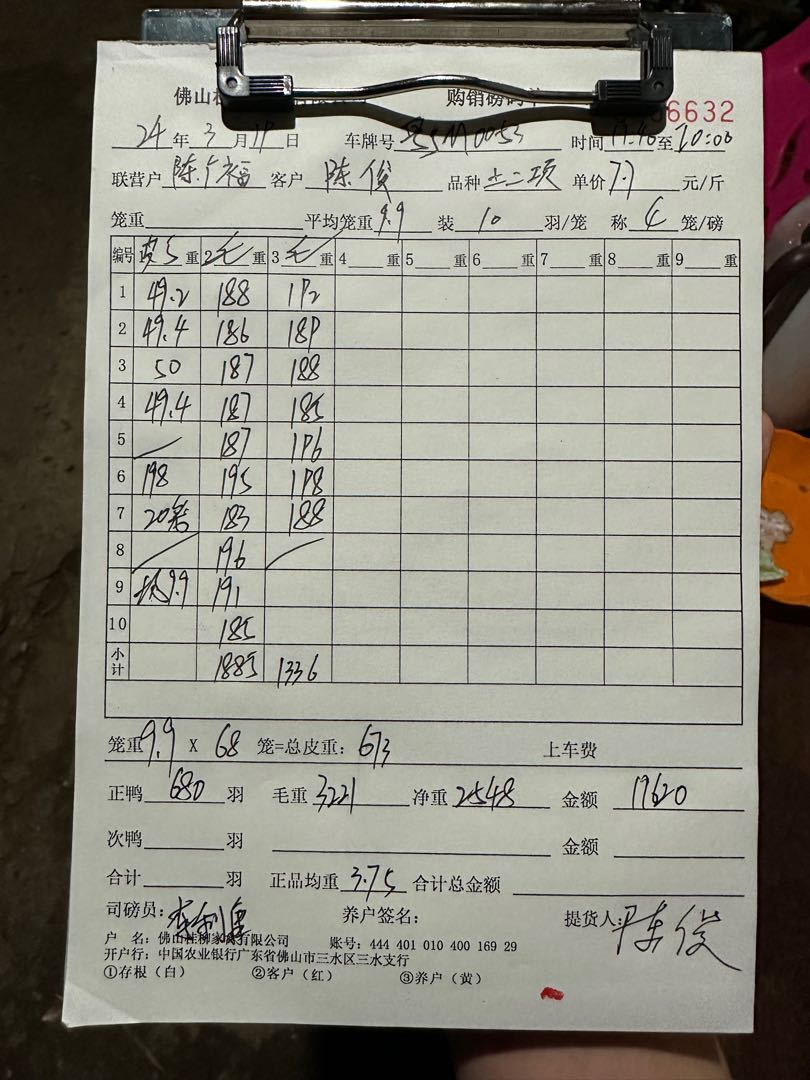 佛山桂 购销磅码单
6632
24 年 3 月 19 日 车牌号 时间 至 20:00
联营户 陈广福 客户 陈俊 品种 土二项 单价 7.7 元/斤
笼重 平均笼重 9.9 装 10 羽/笼 称 4 笼/磅
编号 重 2 毛 重 3 毛 重 4 重 5 重 6 重 7 重 8 重 9 重
1 49.2 188 192
2 49.4 186 189
3 50 187 188
4 49.4 187 185
5 187 196
6 198 195 198
7 20 183 188
8 196
9 9.9 191
10 185
小计 1885 1336
笼重 9.9 X 68 笼=总皮重: 673 上车费
正鸭 680 羽 毛重 3221 净重 2548 金额 19620
次鸭 羽 金额
合计 羽 正品均重 3.75 合计总金额
司磅员: 养户签名: 提货人: 陈俊
户 名: 佛山桂柳家禽有限公司 账号: 444 401 010 400 169 29
开户行: 中国农业银行广东省佛山市三水区三水支行
①存根(白) ②客户(红) ③养户(黄)